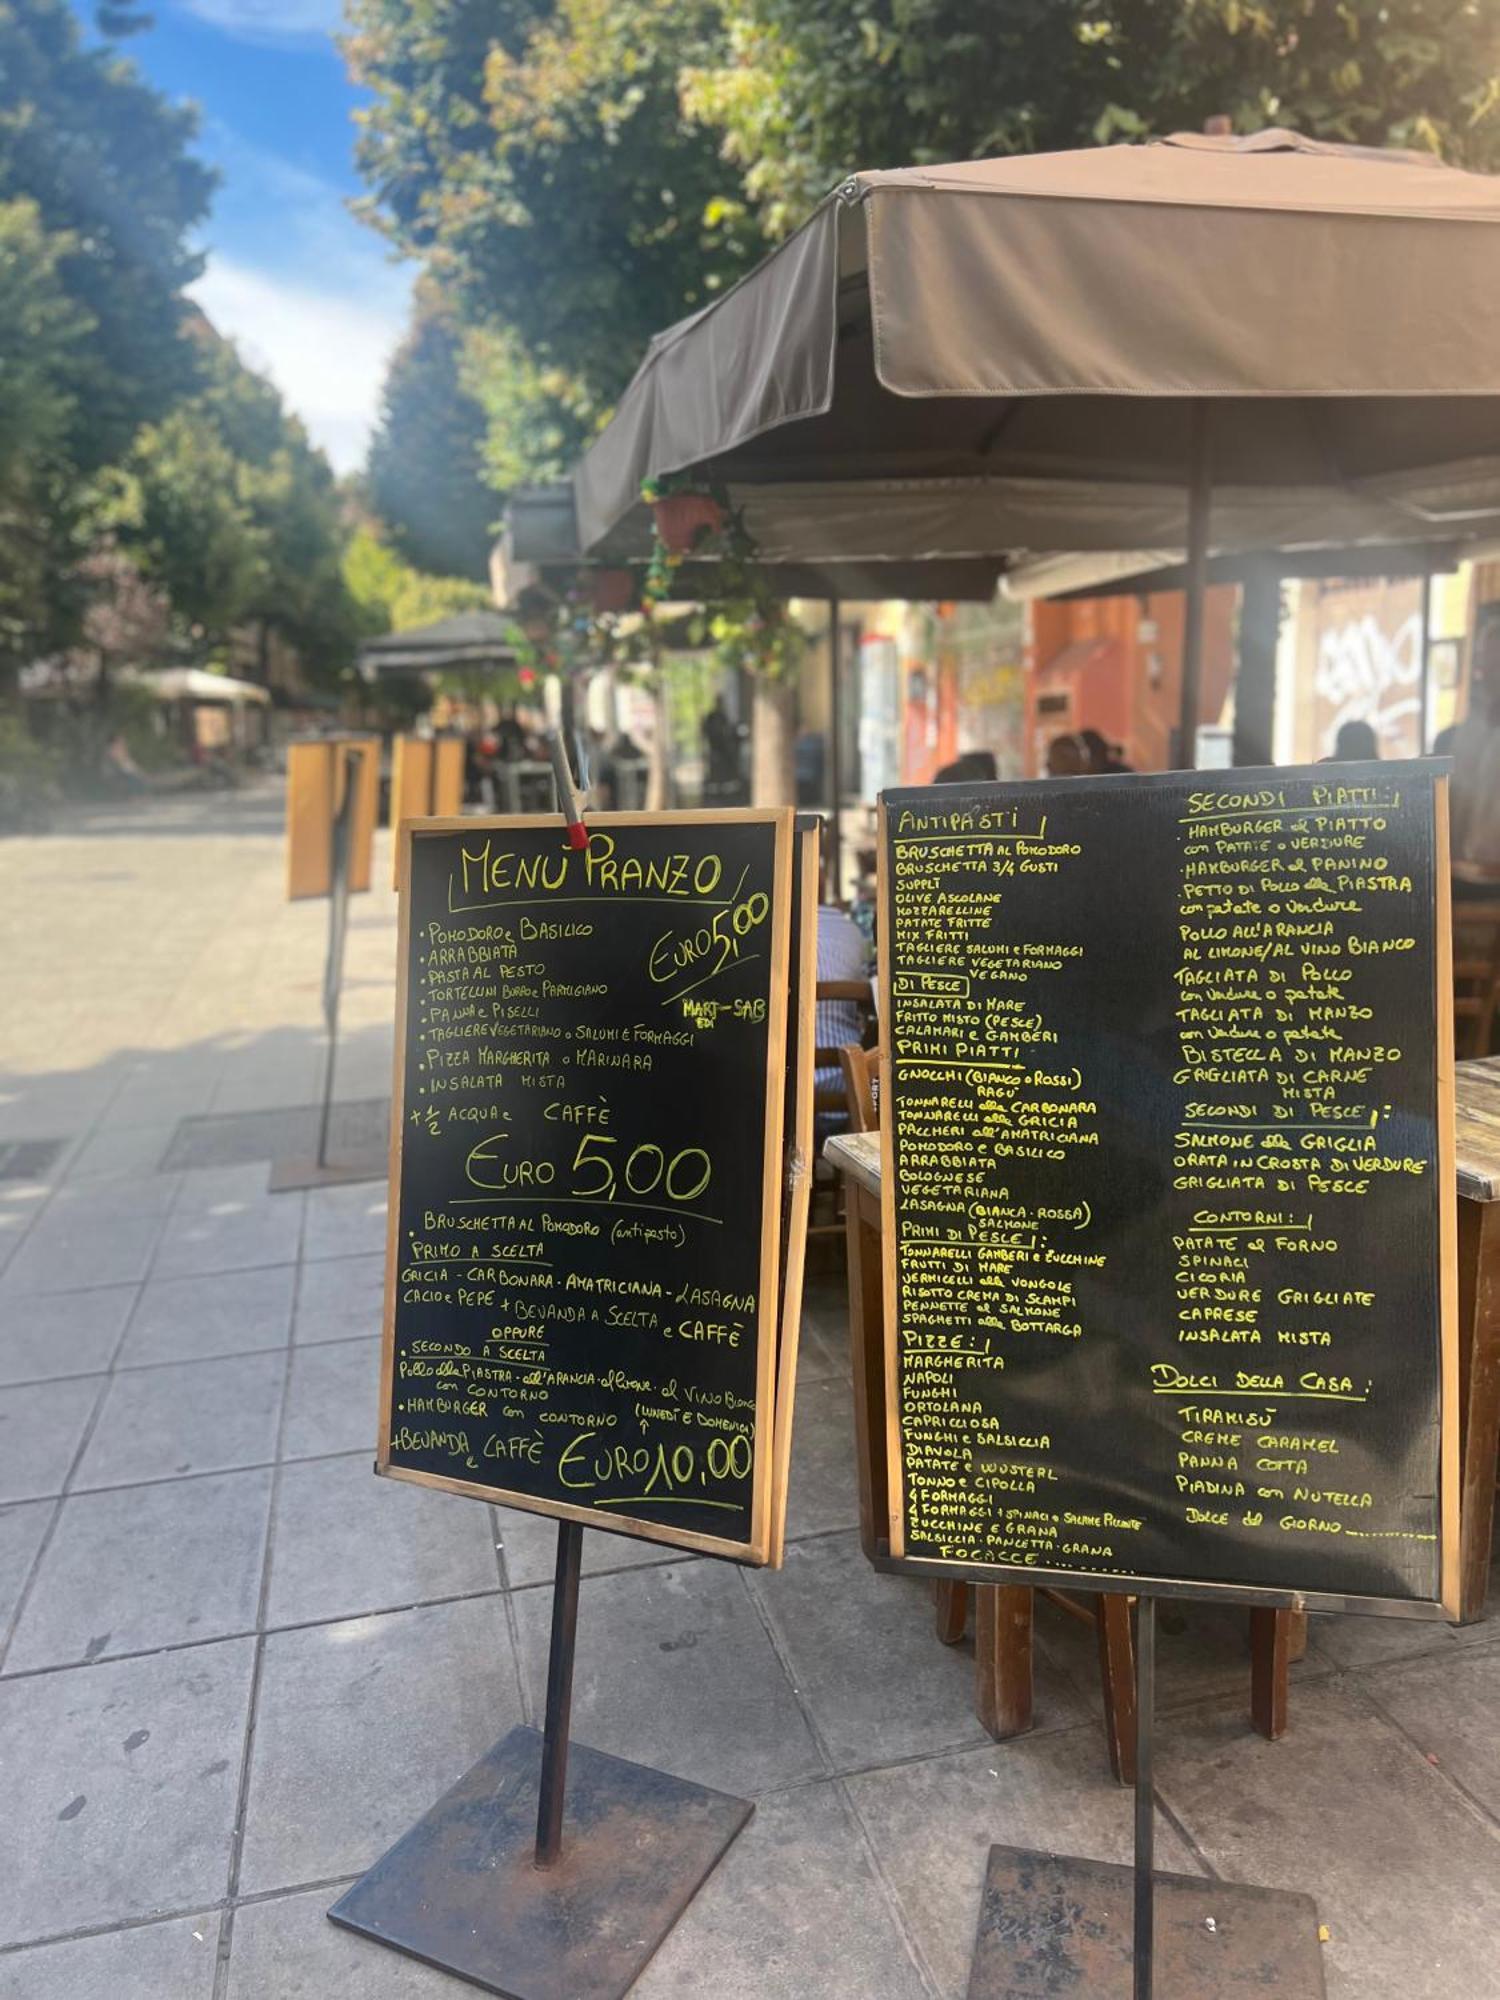 MENÙ PRANZO
EURO 5,00
MART-SAB
EDI
• POMODORO e BASILICO
• ARRABBIATA
• PASTA AL PESTO
• TORTELLINI BURRO e PARMIGIANO
• PANNA e PISELLI
• TAGLIERE VEGETARIANO o SALUMI E FORMAGGI
• PIZZA MARGHERITA o MARINARA
• INSALATA MISTA
+ 1/2 ACQUA e CAFFÈ
EURO 5,00
• BRUSCHETTA AL POMODORO (antipasto)
PRIMO A SCELTA
GRICIA - CARBONARA - AMATRICIANA - LASAGNA
CACIO e PEPE + BEVANDA A SCELTA
e CAFFÈ
OPPURE
• SECONDO A SCELTA
Pollo alla PIASTRA - all'ARANCIA - al limone - al VINO Bianco
con CONTORNO
• HAMBURGER con CONTORNO (LUNEDÌ E DOMENICA)
+BEVANDA e CAFFÈ EURO 10,00
ANTIPASTI
BRUSCHETTA AL POMODORO
BRUSCHETTA 3/4 GUSTI
SUPPLÌ
OLIVE ASCOLANE
MOZZARELLINE
PATATE FRITTE
MIX FRITTI
TAGLIERE SALUMI e FORMAGGI
TAGLIERE VEGETARIANO
VEGANO
DI PESCE
INSALATA DI MARE
FRITTO MISTO (PESCE)
CALAMARI e GAMBERI
PRIMI PIATTI
GNOCCHI (BIANCO o ROSSI)
RAGÙ
TONNARELLI alla CARBONARA
TONNARELLI alla GRICIA
PACCHERI all'AMATRICIANA
POMODORO E BASILICO
ARRABBIATA
BOLOGNESE
VEGETARIANA
LASAGNA (BIANCA - ROSSA)
SALMONE
PRIMI DI PESCE:
TONNARELLI GAMBERI e ZUCCHINE
FRUTTI DI MARE
VERMICELLI alle VONGOLE
RISOTTO CREMA DI SCAMPI
PENNETTE al SALMONE
SPAGHETTI alla BOTTARGA
PIZZE:
MARGHERITA
NAPOLI
FUNGHI
ORTOLANA
CAPRICCIOSA
FUNGHI e SALSICCIA
DIAVOLA
PATATE e WUSTERL
TONNO e CIPOLLA
4 FORMAGGI
4 FORMAGGI + SPINACI o SALAME PICCANTE
ZUCCHINE E GRANA
SALSICCIA - PANCETTA - GRANA
FOCACCE..........
SECONDI PIATTI:
• HAMBURGER al PIATTO
con PATATE o VERDURE
• HAMBURGER al PANINO
• PETTO DI POLLO alla PIASTRA
con patate o verdure
POLLO ALL'ARANCIA
AL LIMONE/AL VINO BIANCO
TAGLIATA DI POLLO
con verdure o patate
TAGLIATA DI MANZO
con verdure o patate
BISTECCA DI MANZO
GRIGLIATA DI CARNE
MISTA
SECONDI DI PESCE:
SALMONE alla GRIGLIA
ORATA IN CROSTA DI VERDURE
GRIGLIATA DI PESCE
CONTORNI:
PATATE al FORNO
SPINACI
CICORIA
VERDURE GRIGLIATE
CAPRESE
INSALATA MISTA
DOLCI DELLA CASA:
TIRAMISÙ
CREME CARAMEL
PANNA COTTA
PIADINA con NUTELLA
DOLCE del GIORNO..............